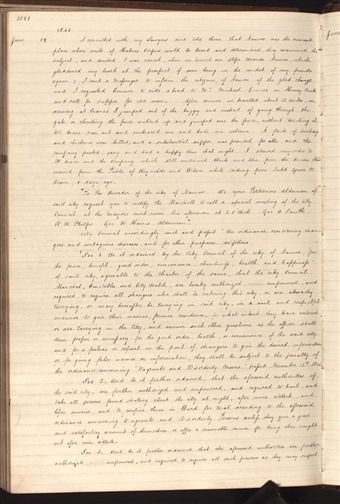 1841
1841.
June 29 I consulted with my Lawyers and told them that Nauvoo was the nearest
place where writs of Habeas Corpus could be heard and determined, they examined the
subject, and decided I was correct when we turned our steps towards Nauvoo which
gladdened my heart at the prospect of soon being in the midst of my friends
again; I sent a messenger to inform the citizens of Nauvoo of the glad change
and I requested Conover to ride ahead to Mr. Michael Crane's on Honey Creek
and call for supper for 100 men. After dinner we travelled about 15 miles. on
arriving at Crane's I jumped out of the buggy and instead of going through the
gate or climbing the fence walked up and jumped over the fence, without touching it.
Mr. Crane ran out and embraced me and bade me welcome. A flock of turkeys
and chickens were killed, and a substantial supper was provided for all, and the
company feasted, sung and had a happy time that night. I showed my sides to
Mr. Crane and the company which still continued black and blue from the bruises I had
received from the Pistols of Reynolds and Wilson while riding from Inlet Grove to
Dixon, 8 days ago.
"To the Recorder of the City of Nauvoo. We your Petitioners Aldermen of
said city request you to notify the Marshall to call a special meeting of the City
Council at the Mayor's court room this afternoon at 2 o'clock. Geo. A. Smith
W. W. Phelps Geo. W. Harris Aldermen"
City Council accordingly met and passed "An ordinance concerning strangers
and contagious diseases, and for other purposes, as follows.
"Sec. 1. Be it ordained by the City Council of the city of Nauvoo, for
the peace, benefit, good order, convenience, cleanliness, health and happiness
of said city, agreeable to the charter of the same, that the city Council,
Marshal, Constables and City Watch, are hereby authorized, empowered, and
required to require all strangers who shall be entering this city, or are already
tarrying, or may hereafter be tarrying in said city, in a civil and respectful
manner to give their names, former residence, for what intent they have entered
or are tarrying in the City, and answer such other questions as the officer shall
deem proper or necessary for the good order, health, or convenience of the said city;
and for a failure or refusal on the part of strangers to give the desired information
or for giving false names or information, they shall be subject to the penalty of
the ordinance concerning "Vagrants and Disorderly Persons," passed November 13th 1841.
Sec. 2. And be it further ordained, that the aforesaid authorities of
the said city, are further authorized and empowered, and required to hail, and
take all persons found strolling about the city at night, after nine o'clock, and
before sunrise, and to confine them in Ward for trial according to the aforesaid
ordinance concerning Vagrants and Disorderly Persons unless they give a good
and satisfactory account of themselves, or offer a reasonable excuse for being thus caught
out after nine o'clock.
Sec. 3. And be it further ordained that the aforesaid authorities are further
authorized empowered, and required to require all such persons as they may suspect